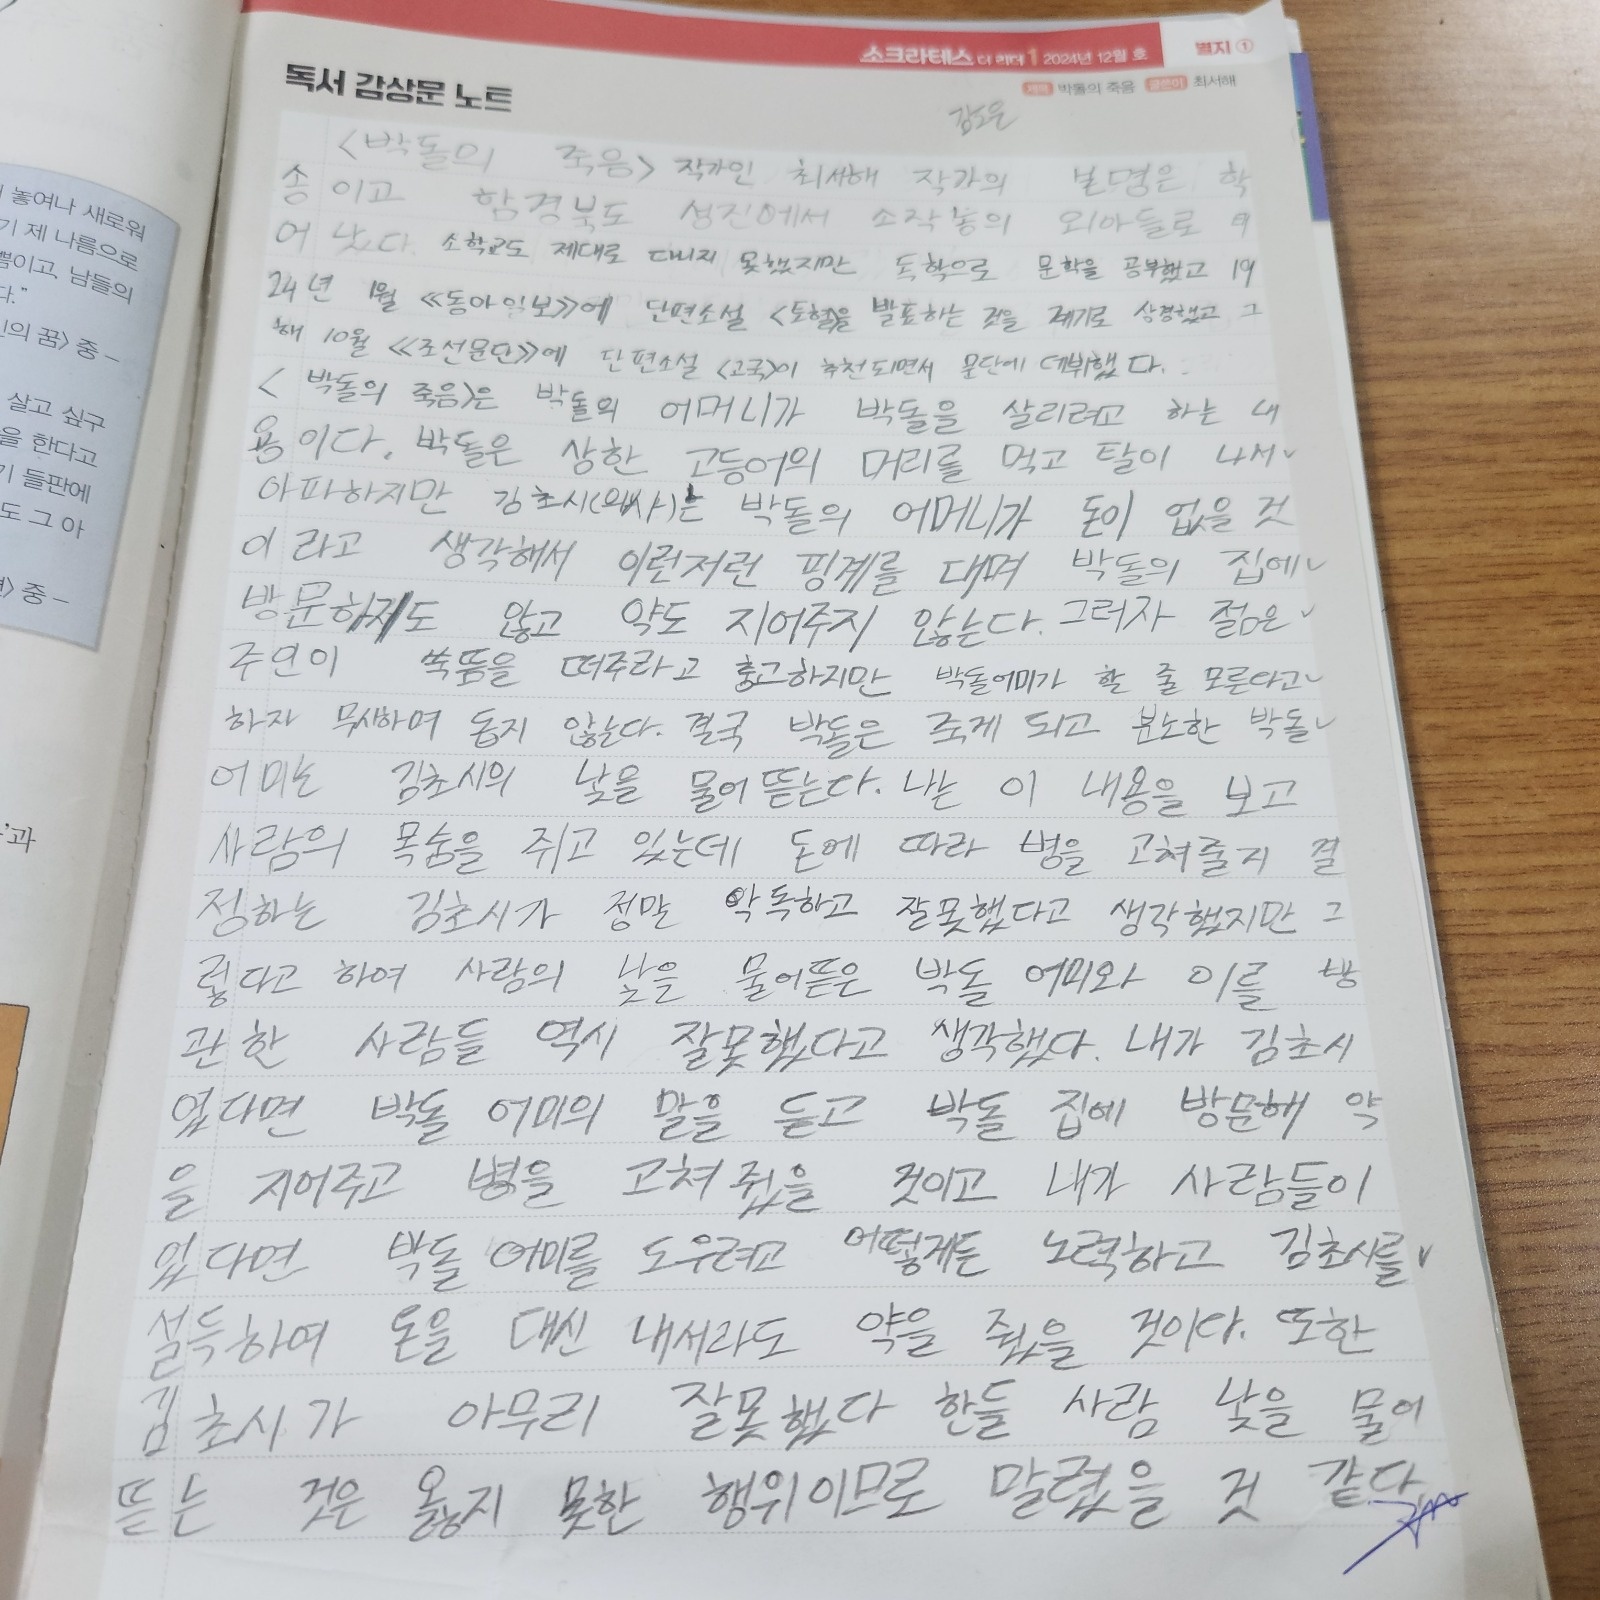 소크라테스 더 리더 1 2024년 12월 호 별지 ①
독서 감상문 노트
제목 박돌의 죽음 글쓴이 최서해
<박돌의 죽음> 작가인 최서해 작가의 본명은 학
송이고 함경북도 성진에서 소작농의 외아들로 태
어났다. 소학교도 제대로 다니지 못했지만 독학으로 문학을 공부했고 19
24년 1월 《동아일보》에 단편소설 <토혈>을 발표하는 것을 계기로 상경했고 그
해 10월 《조선문단》에 단편소설 <고국>이 추천되면서 문단에 데뷔했다.
<박돌의 죽음>은 박돌의 어머니가 박돌을 살리려고 하는 내
용이다. 박돌은 상한 고등어의 머리를 먹고 탈이 나서
아파하지만 김초시(의사)는 박돌의 어머니가 돈이 없을 것
이라고 생각해서 이런저런 핑계를 대며 박돌의 집에
방문하지도 않고 약도 지어주지 않는다. 그러자 젊은
주인이 쑥뜸을 떠주라고 충고하지만 박돌어미가 할 줄 모른다고
하자 무시하며 돕지 않는다. 결국 박돌은 죽게 되고 분노한 박돌
어미는 김초시의 낯을 물어뜯는다. 나는 이 내용을 보고
사람의 목숨을 쥐고 있는데 돈에 따라 병을 고쳐줄지 결
정하는 김초시가 정말 악독하고 잘못했다고 생각했지만 그
렇다고 하여 사람의 낯을 물어뜯은 박돌 어미와 이를 방
관한 사람들 역시 잘못했다고 생각했다. 내가 김초시
였다면 박돌 어미의 말을 듣고 박돌 집에 방문해 약
을 지어주고 병을 고쳐 줬을 것이고 내가 사람들이
었다면 박돌 어미를 도우려고 어떻게든 노력하고 김초시를
설득하여 돈을 대신 내서라도 약을 줬을 것이다. 또한
김초시가 아무리 잘못했다 한들 사람 낯을 물어
뜯는 것은 옳지 못한 행위이므로 말렸을 것 같다.
놓여나 새로워
기 제 나름으로
쁨이고, 남들의
다."
의 꿈> 중 –
살고 싶구
을 한다고
기 들판에
도 그 아
> 중 –
'과